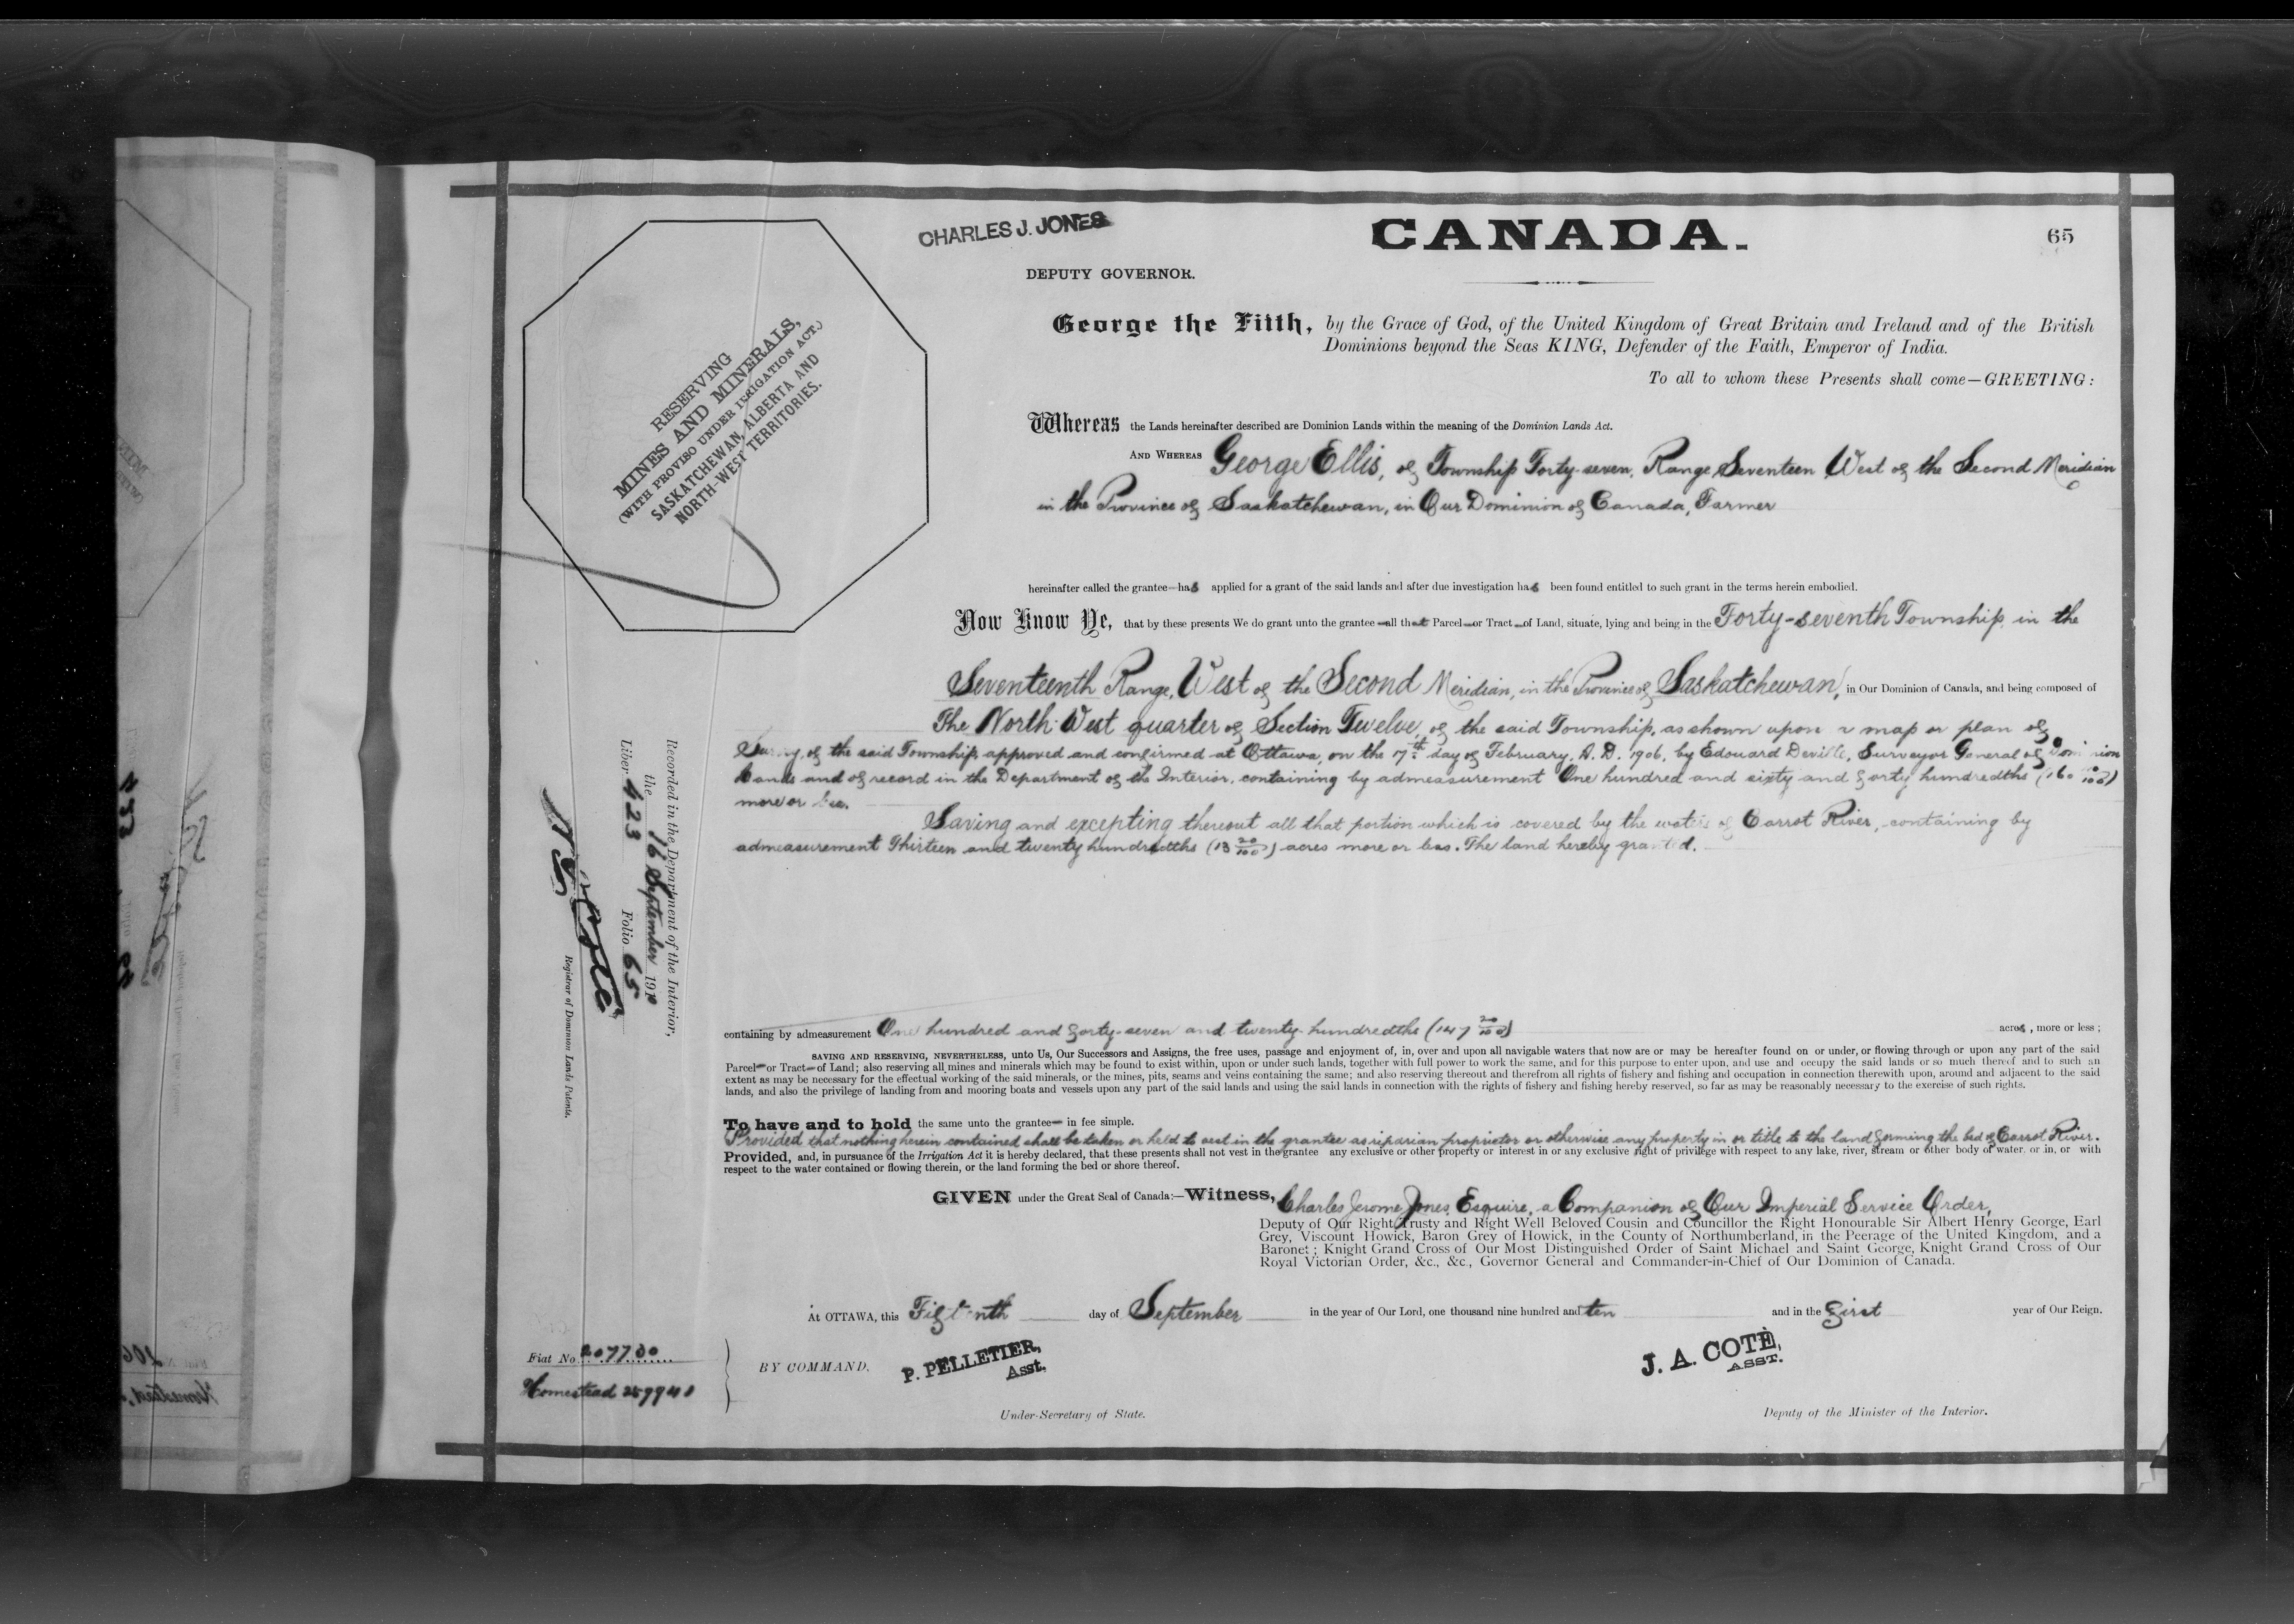 CHARLES J. JONES
CANADA.
65
DEPUTY GOVERNOR.
George the Fifth, by the Grace of God, of the United Kingdom of Great Britain and Ireland and of the British
Dominions beyond the Seas KING, Defender of the Faith, Emperor of India.
To all to whom these Presents shall come—GREETING:
RESERVING
MINES AND MINERALS,
(WITH PROVISO UNDER IRRIGATION ACT.)
SASKATCHEWAN, ALBERTA AND
NORTH-WEST TERRITORIES.
Whereas the Lands hereinafter described are Dominion Lands within the meaning of the Dominion Lands Act.
AND WHEREAS George Ellis, of Township Forty-seven, Range Seventeen West of the Second Meridian
in the Province of Saskatchewan, in Our Dominion of Canada, Farmer
hereinafter called the grantee—has applied for a grant of the said lands and after due investigation has been found entitled to such grant in the terms herein embodied.
Now Know Ye, that by these presents We do grant unto the grantee—all that Parcel—or Tract—of Land, situate, lying and being in the Forty-seventh Township, in the
Seventeenth Range, West of the Second Meridian, in the Province of Saskatchewan, in Our Dominion of Canada, and being composed of
The North West quarter of Section Twelve, of the said Township, as shown upon a map or plan of
Survey of the said Township, approved and confirmed at Ottawa, on the 17th day of February, A. D. 1906, by Edouard Deville, Surveyor General of Dominion
Lands and of record in the Department of the Interior, containing by admeasurement One hundred and sixty and forty hundredths (160 /100)
more or less.
Saving and excepting thereout all that portion which is covered by the waters of Carrot River, containing by
admeasurement Thirteen and twenty hundredths (13 20/100) acres more or less. The land hereby granted.
containing by admeasurement One hundred and forty-seven and twenty-hundredths (147 20/100) acres, more or less;
SAVING AND RESERVING, NEVERTHELESS, unto Us, Our Successors and Assigns, the free uses, passage and enjoyment of, in, over and upon all navigable waters that now are or may be hereafter found on or under, or flowing through or upon any part of the said
Parcel—or Tract—of Land; also reserving all mines and minerals which may be found to exist within, upon or under such lands, together with full power to work the same, and for this purpose to enter upon, and use and occupy the said lands or so much thereof and to such an
extent as may be necessary for the effectual working of the said minerals, or the mines, pits, seams and veins containing the same; and also reserving thereout and therefrom all rights of fishery and fishing and occupation in connection therewith upon, around and adjacent to the said
lands, and also the privilege of landing from and mooring boats and vessels upon any part of the said lands and using the said lands in connection with the rights of fishery and fishing hereby reserved, so far as may be reasonably necessary to the exercise of such rights.
To have and to hold the same unto the grantee— in fee simple.
Provided that nothing herein contained shall be taken or held to vest in the grantee as riparian proprietor or otherwise any property in or title to the land forming the bed of Carrot River.
Provided, and, in pursuance of the Irrigation Act it is hereby declared, that these presents shall not vest in the grantee any exclusive or other property or interest in or any exclusive right of privilege with respect to any lake, river, stream or other body of water, or in, or with
respect to the water contained or flowing therein, or the land forming the bed or shore thereof.
GIVEN under the Great Seal of Canada:—Witness, Charles Jerome Jones, Esquire, a Companion of Our Imperial Service Order,
Deputy of Our Right Trusty and Right Well Beloved Cousin and Councillor the Right Honourable Sir Albert Henry George, Earl
Grey, Viscount Howick, Baron Grey of Howick, in the County of Northumberland, in the Peerage of the United Kingdom, and a
Baronet; Knight Grand Cross of Our Most Distinguished Order of Saint Michael and Saint George, Knight Grand Cross of Our
Royal Victorian Order, &c., &c., Governor General and Commander-in-Chief of Our Dominion of Canada.
At OTTAWA, this Fifteenth day of September in the year of Our Lord, one thousand nine hundred and ten and in the first year of Our Reign.
Fiat No. 207730
Homestead
BY COMMAND,
P. PELLETIER,
Asst.
Under-Secretary of State.
J. A. COTÉ,
ASST.
Deputy of the Minister of the Interior.
Recorded in the Department of the Interior,
the 16 September 1910
Liber 423 Folio 65
Registrar of Dominion Lands Patents.